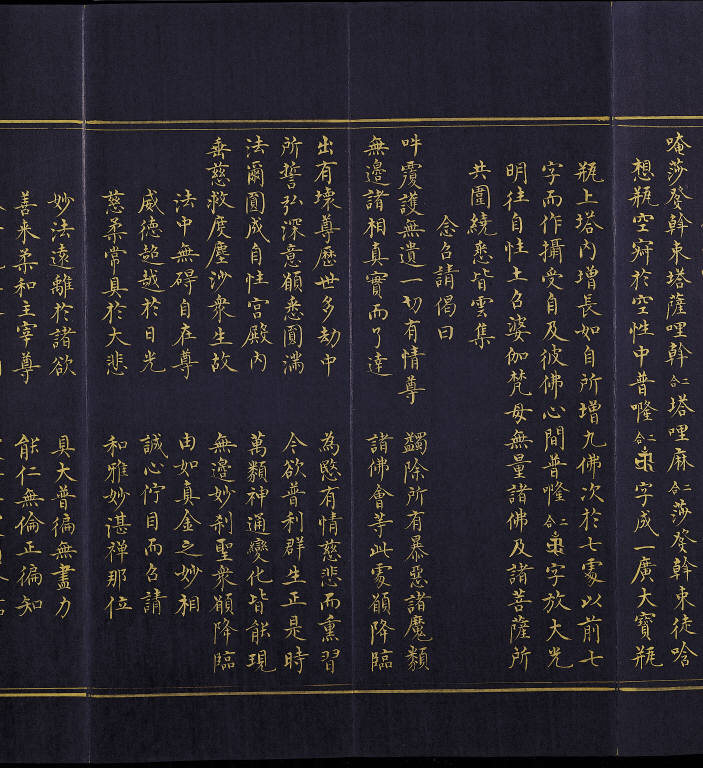 唵莎發斡束塔薩哩斡二合塔哩麻二合莎發斡束徒唅
想瓶空寂於空性中普㘕二合字成一廣大寶瓶
瓶上塔內增長如自所增九佛次於七處以前七
字而作攝受自及彼佛心間普㘕二合字放大光
明往自性土召婆伽梵母無量諸佛及諸菩薩所
共圍繞悉皆雲集
念召請偈曰
吽覆護無遺一切有情尊 蠲除所有暴惡諸魔類
無邊諸相真實而了達 諸佛會等此處願降臨
出有壞尊歷世多劫中 為愍有情慈悲而熏習
所誓弘深意願悉圓滿 今欲普利群生正是時
法爾圓成自性宮殿內 萬類神通變化皆能現
垂慈救度塵沙衆生故 無邊妙利聖衆願降臨
法中無碍自在尊 由如真金之妙相
威德超越於日光 誠心佇目而召請
慈柔常具於大悲 和雅妙湛禪那位
妙法遠離於諸欲 具大普徧無盡力
善来柔和主宰尊 能仁無倫正徧知